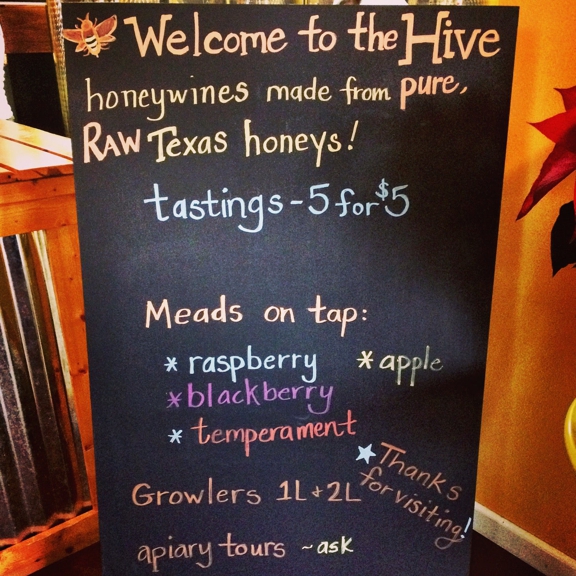 Welcome to the Hive
honeywines made from pure,
RAW Texas honeys!
tastings - 5 for $5
Meads on tap:
* raspberry * apple
* blackberry
* temperament
Growlers 1L + 2L
Thanks
for visiting!
apiary tours ~ask